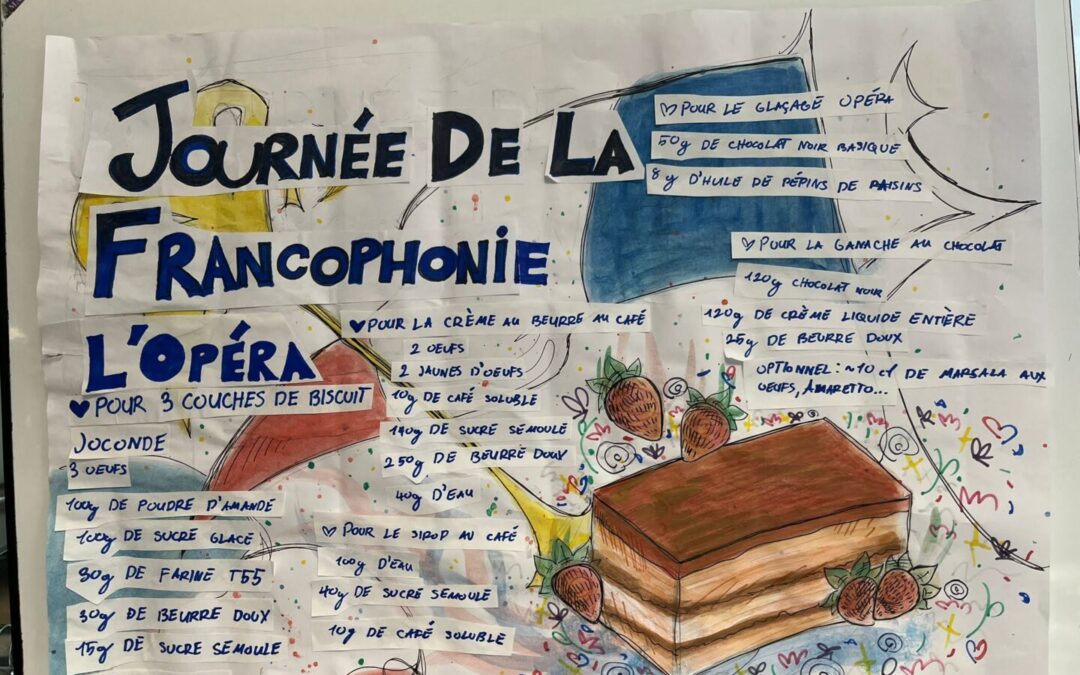 JOURNÉE DE LA
FRANCOPHONIE
L'OPÉRA
POUR 3 COUCHES DE BISCUIT
JOCONDE
3 OEUFS
100g DE POUDRE D'AMANDE
100g DE SUCRE GLACE
30g DE FARINE T55
30g DE BEURRE DOUX
15g DE SUCRE SEMOULE
POUR LA CRÈME AU BEURRE AU CAFÉ
2 OEUFS
2 JAUNES D'OEUFS
10g DE CAFÉ SOLUBLE
140g DE SUCRE SEMOULE
250g DE BEURRE DOUX
40g D'EAU
POUR LE SIROP AU CAFÉ
100g D'EAU
40g DE SUCRE SEMOULE
10g DE CAFÉ SOLUBLE
POUR LE GLAÇAGE OPÉRA
50g DE CHOCOLAT NOIR BASIQUE
8g D'HULE DE PÉPINS DE RAISINS
POUR LA GANACHE AU CHOCOLAT
120g CHOCOLAT NOIR
120g DE CRÈME LIQUIDE ENTIÈRE
25g DE BEURRE DOUX
OPTIONNEL: ~10 cl DE MARSALA AUX
OEUFS, AMARETTO...